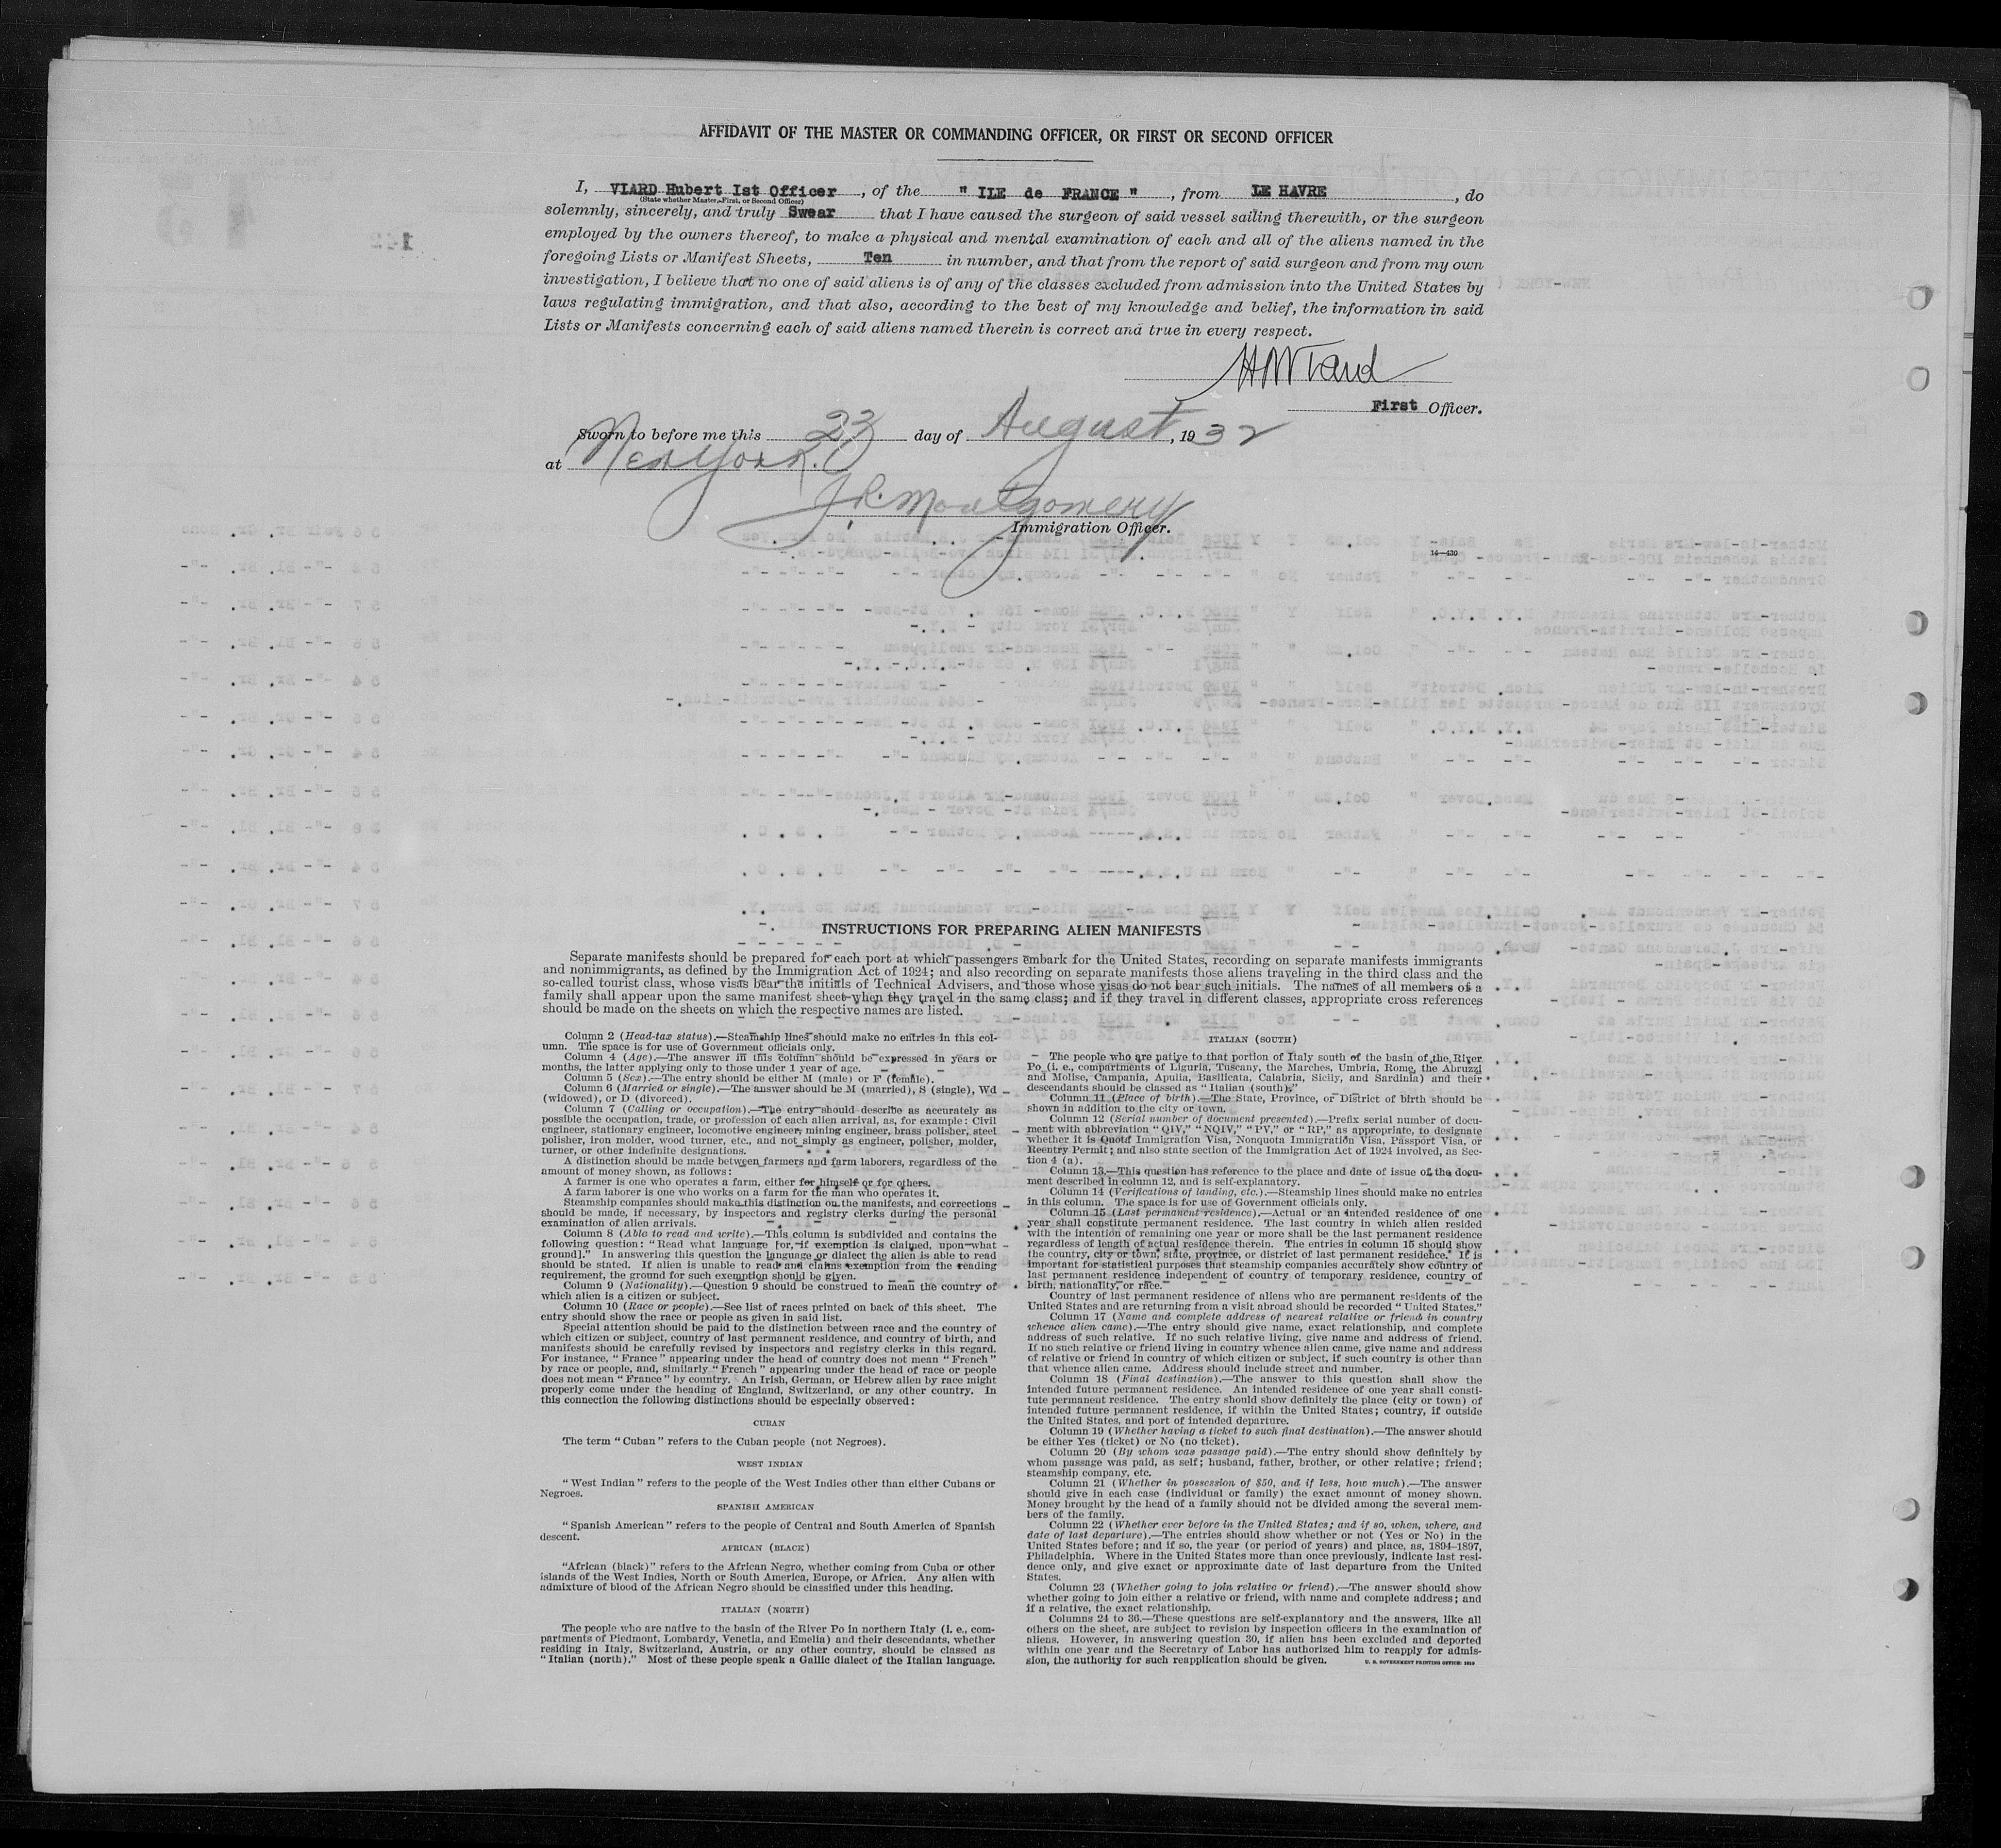 AFFIDAVIT OF THE MASTER OR COMMANDING OFFICER, OR FIRST OR SECOND OFFICER
I, VIARD Hubert Ist Officer, of the " ILE de FRANCE ", from LE HAVRE, do
(State whether Master, First, or Second Officer)
solemnly, sincerely, and truly Swear that I have caused the surgeon of said vessel sailing therewith, or the surgeon
employed by the owners thereof, to make a physical and mental examination of each and all of the aliens named in the
foregoing Lists or Manifest Sheets, Ten in number, and that from the report of said surgeon and from my own
investigation, I believe that no one of said aliens is of any of the classes excluded from admission into the United States by
laws regulating immigration, and that also, according to the best of my knowledge and belief, the information in said
Lists or Manifests concerning each of said aliens named therein is correct and true in every respect.
First Officer.
Sworn to before me this 23 day of August, 1932
at New York.
J.R. Montgomery
Immigration Officer.
14—430
INSTRUCTIONS FOR PREPARING ALIEN MANIFESTS
Separate manifests should be prepared for each port at which passengers embark for the United States, recording on separate manifests immigrants
and nonimmigrants, as defined by the Immigration Act of 1924; and also recording on separate manifests those aliens traveling in the third class and the
so-called tourist class, whose visas bear the initials of Technical Advisers, and those whose visas do not bear such initials. The names of all members of a
family shall appear upon the same manifest sheet when they travel in the same class; and if they travel in different classes, appropriate cross references
should be made on the sheets on which the respective names are listed.
Column 2 (Head-tax status).—Steamship lines should make no entries in this col-
umn. The space is for use of Government officials only.
Column 4 (Age).—The answer in this column should be expressed in years or
months, the latter applying only to those under 1 year of age.
Column 5 (Sex).—The entry should be either M (male) or F (female).
Column 6 (Married or single).—The answer should be M (married), S (single), Wd
(widowed), or D (divorced).
Column 7 (Calling or occupation).—The entry should describe as accurately as
possible the occupation, trade, or profession of each alien arrival, as, for example: Civil
engineer, stationary engineer, locomotive engineer, mining engineer, brass polisher, steel
polisher, iron molder, wood turner, etc., and not simply as engineer, polisher, molder,
turner, or other indefinite designations.
A distinction should be made between farmers and farm laborers, regardless of the
amount of money shown, as follows:
A farmer is one who operates a farm, either for himself or for others.
A farm laborer is one who works on a farm for the man who operates it.
Steamship companies should make this distinction on the manifests, and corrections
should be made, if necessary, by inspectors and registry clerks during the personal
examination of alien arrivals.
Column 8 (Able to read and write).—This column is subdivided and contains the
following question: "Read what language [or, if exemption is claimed, upon what
ground]." In answering this question the language or dialect the alien is able to read
should be stated. If alien is unable to read and claims exemption from the reading
requirement, the ground for such exemption should be given.
Column 9 (Nationality).—Question 9 should be construed to mean the country of
which alien is a citizen or subject.
Column 10 (Race or people).—See list of races printed on back of this sheet. The
entry should show the race or people as given in said list.
Special attention should be paid to the distinction between race and the country of
which citizen or subject, country of last permanent residence, and country of birth, and
manifests should be carefully revised by inspectors and registry clerks in this regard.
For instance, "France" appearing under the head of country does not mean "French"
by race or people, and, similarly "French" appearing under the head of race or people
does not mean "France" by country. An Irish, German, or Hebrew alien by race might
properly come under the heading of England, Switzerland, or any other country. In
this connection the following distinctions should be especially observed:
CUBAN
The term "Cuban" refers to the Cuban people (not Negroes).
WEST INDIAN
"West Indian" refers to the people of the West Indies other than either Cubans or
Negroes.
SPANISH AMERICAN
"Spanish American" refers to the people of Central and South America of Spanish
descent.
AFRICAN (BLACK)
"African (black)" refers to the African Negro, whether coming from Cuba or other
islands of the West Indies, North or South America, Europe, or Africa. Any alien with
admixture of blood of the African Negro should be classified under this heading.
ITALIAN (NORTH)
The people who are native to the basin of the River Po in northern Italy (i. e., com-
partments of Piedmont, Lombardy, Venetia, and Emelia) and their descendants, whether
residing in Italy, Switzerland, Austria, or any other country, should be classed as
"Italian (north)." Most of these people speak a Gallic dialect of the Italian language.
ITALIAN (SOUTH)
The people who are native to that portion of Italy south of the basin of the River
Po (i. e., compartments of Liguria, Tuscany, the Marches, Umbria, Rome, the Abruzzi
and Molise, Campania, Apulia, Basilicata, Calabria, Sicily, and Sardinia) and their
descendants should be classed as "Italian (south)."
Column 11 (Place of birth).—The State, Province, or District of birth should be
shown in addition to the city or town.
Column 12 (Serial number of document presented).—Prefix serial number of docu-
ment with abbreviation "QIV," "NQIV," "PV," or "RP," as appropriate, to designate
whether it is Quota Immigration Visa, Nonquota Immigration Visa, Passport Visa, or
Reentry Permit; and also state section of the Immigration Act of 1924 involved, as Sec-
tion 4 (a).
Column 13.—This question has reference to the place and date of issue of the docu-
ment described in column 12, and is self-explanatory.
Column 14 (Verifications of landing, etc.).—Steamship lines should make no entries
in this column. The space is for use of Government officials only.
Column 15 (Last permanent residence).—Actual or an intended residence of one
year shall constitute permanent residence. The last country in which alien resided
with the intention of remaining one year or more shall be the last permanent residence
regardless of length of actual residence therein. The entries in column 15 should show
the country, city or town, state, province, or district of last permanent residence. It is
important for statistical purposes that steamship companies accurately show country of
last permanent residence independent of country of temporary residence, country of
birth, nationality, or race.
Country of last permanent residence of aliens who are permanent residents of the
United States and are returning from a visit abroad should be recorded "United States."
Column 17 (Name and complete address of nearest relative or friend in country
whence alien came).—The entry should give name, exact relationship, and complete
address of such relative. If no such relative living, give name and address of friend.
If no such relative or friend living in country whence alien came, give name and address
of relative or friend in country of which citizen or subject, if such country is other than
that whence alien came. Address should include street and number.
Column 18 (Final destination).—The answer to this question shall show the
intended future permanent residence. An intended residence of one year shall consti-
tute permanent residence. The entry should show definitely the place (city or town) of
intended future permanent residence, if within the United States; country, if outside
the United States, and port of intended departure.
Column 19 (Whether having a ticket to such final destination).—The answer should
be either Yes (ticket) or No (no ticket).
Column 20 (By whom was passage paid).—The entry should show definitely by
whom passage was paid, as self; husband, father, brother, or other relative; friend;
steamship company, etc.
Column 21 (Whether in possession of $50, and if less, how much).—The answer
should give in each case (individual or family) the exact amount of money shown.
Money brought by the head of a family should not be divided among the several mem-
bers of the family.
Column 22 (Whether ever before in the United States; and if so, when, where, and
date of last departure).—The entries should show whether or not (Yes or No) in the
United States before; and if so, the year (or period of years) and place, as, 1894–1897,
Philadelphia. Where in the United States more than once previously, indicate last resi-
dence only, and give exact or approximate date of last departure from the United
States.
Column 23 (Whether going to join relative or friend).—The answer should show
whether going to join either a relative or friend, with name and complete address; and
if a relative, the exact relationship.
Columns 24 to 36.—These questions are self-explanatory and the answers, like all
others on the sheet, are subject to revision by inspection officers in the examination of
aliens. However, in answering question 30, if alien has been excluded and deported
within one year and the Secretary of Labor has authorized him to reapply for admis-
sion, the authority for such reapplication should be given.
U. S. GOVERNMENT PRINTING OFFICE: 1929